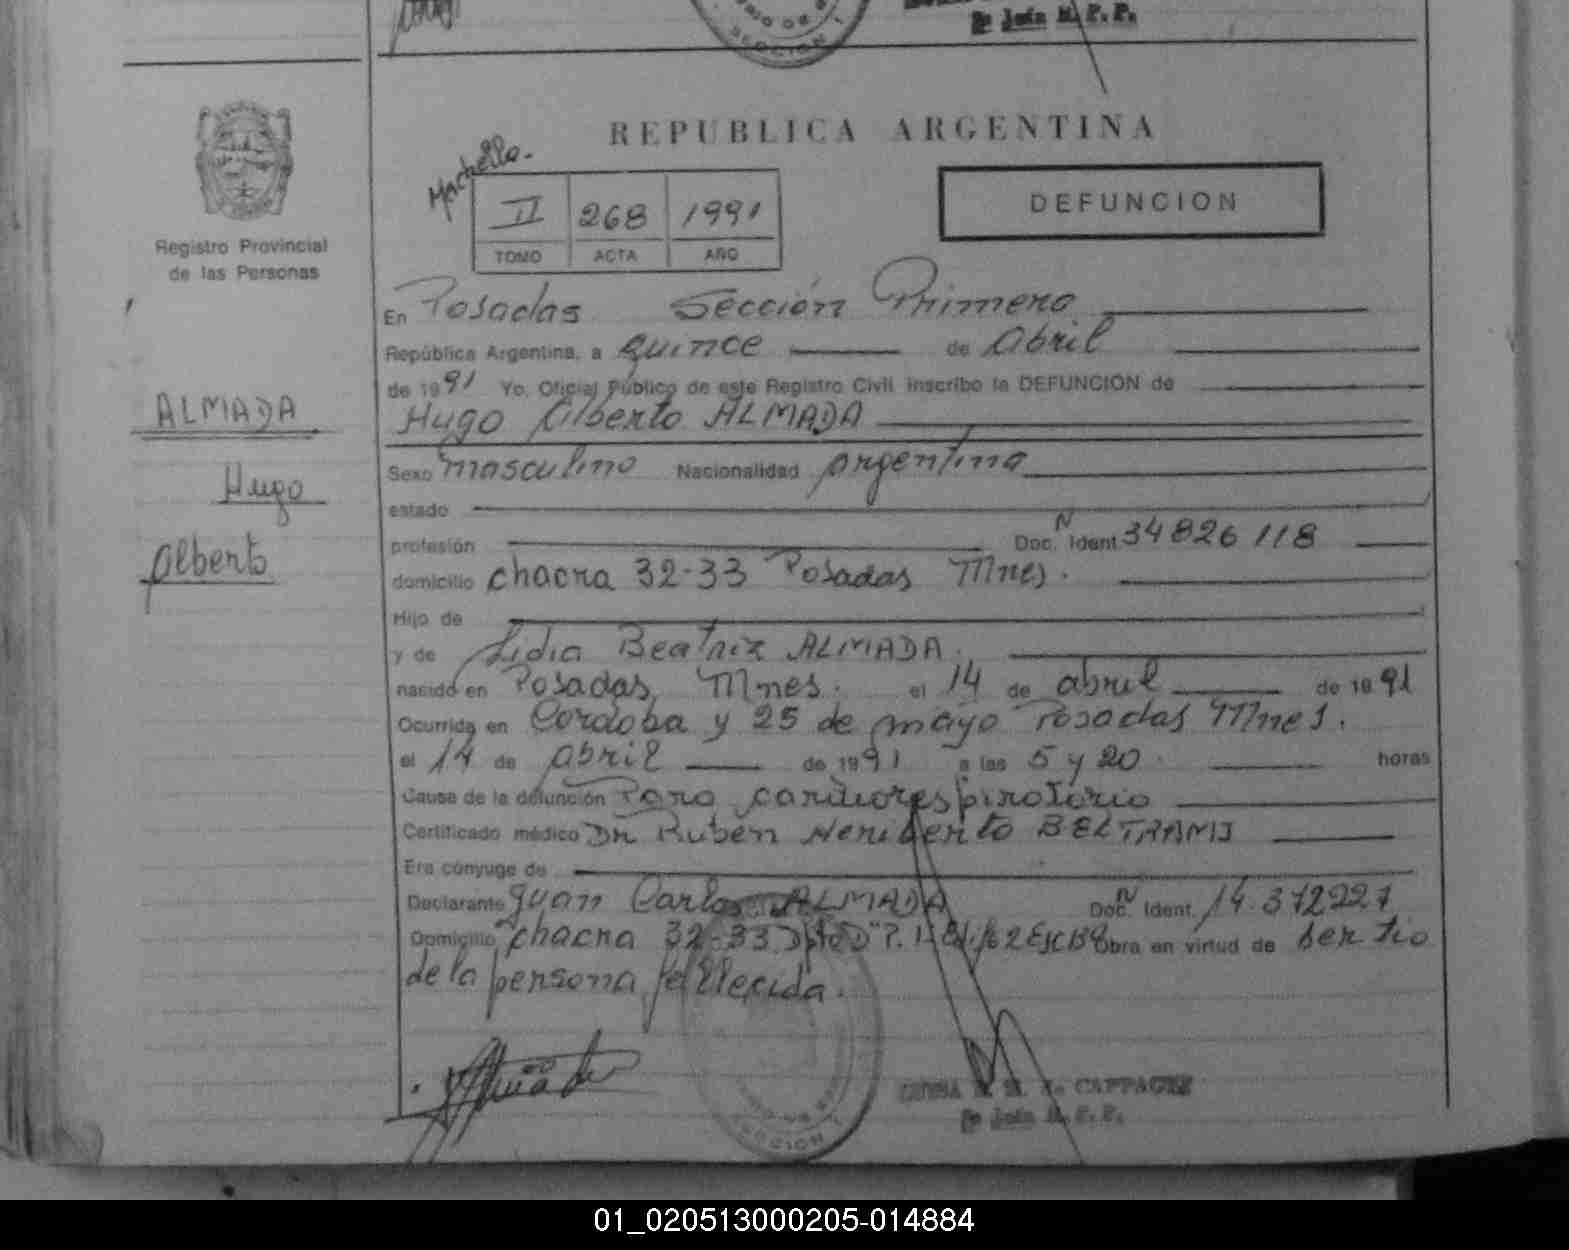 Jefa R. P. P.
SECCION 1
REPUBLICA ARGENTINA
Registro Provincial
de las Personas
II 268 1991
TOMO ACTA AÑO
DEFUNCION
En Posadas Sección Primera
República Argentina, a quince de abril
de 1991 Yo, Oficial Público de este Registro Civil inscribo la DEFUNCION de
Hugo Alberto ALMADA
ALMADA
Hugo
Alberto
Sexo masculino Nacionalidad argentina
estado
profesión Doc. N Ident. 34826118
domicilio chacra 32-33 Posadas Mnes.
Hijo de
y de Lidia Beatriz ALMADA.
nacido en Posadas, Mnes. el 14 de abril de 1991
Ocurrida en Cordoba y 25 de mayo Posadas Mnes.
el 14 de abril de 1991 a las 5 y 20 horas
Causa de la defunción Paro cardiorespiratorio
Certificado médico Dr Ruben Heriberto BELTRAMI
Era cónyuge de
Declarante Juan Carlos ALMADA Doc. N Ident. 14.372227
Domicilio chacra 32-33 Dpto D P. 1 Edif 2 Esc B Obra en virtud de ser tio
de la persona fallecida.
SECCION 1
Jefa R. P. P.
01_020513000205-014884